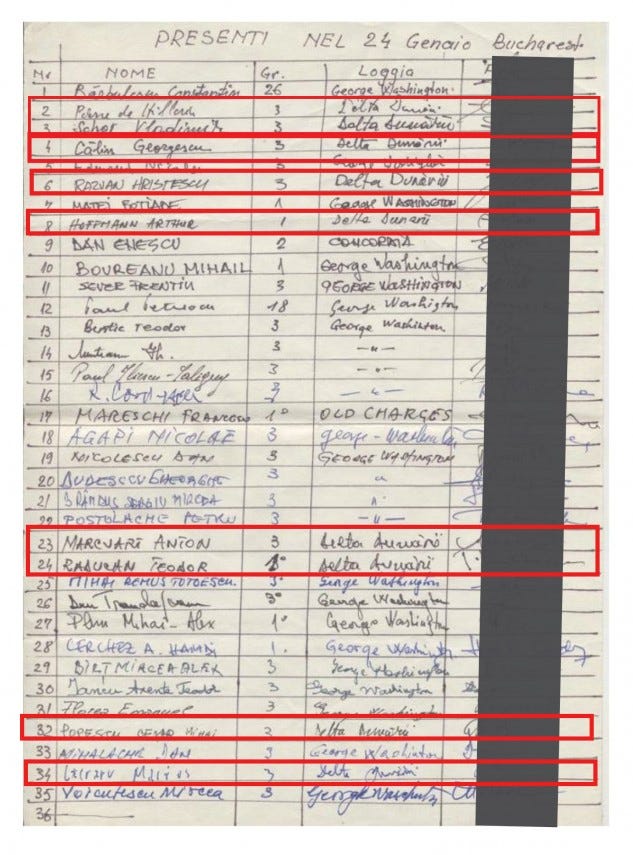 PRESENTI NEL 24 Genaio Bucharest.
Nr NOME Gr. Loggia
1 Constantin 26 George Washington
2 Pierre de 3 Delta Dunării
3 Schor Vladimir 3 Delta Dunării
4 Călin Georgescu 3 Delta Dunării
3 George
6 RAZVAN HRISTESCU 3 Delta Dunării
7 MATEI BOTIANE 1 George WASHINGTON
8 HOFFMANN ARTHUR 1 Delta Dunării
9 DAN ENESCU 2 CONCORDIA
10 BOUREANU MIHAIL 1 George Washington
11 SEVER FRENTIU 3 GEORGE WASHINGTON
12 Paul 18 George Washington
13 Teodor 3 George Washinton
14 Gh. 3 -"-
15 Paul 3 -"-
16 R. 3 -"-
17 MARESCHI FRANCESCO 1° OLD CHARGES
18 AGAPI NICOLAE 3 george -
19 NICOLESCU DAN 3 GEORGE WASHINGTON
20 DUDESCU GHEORGHE 3 "
21 BRÂNDUS SERGIU MIRCEA 3 "
22 POSTOLACHE PETRU 3 -"-
23 MARCVART ANTON 3 Delta Dunării
24 RADUCAN TEODOR 1° Delta Dunării
25 MIHAI REMUS TOTOESCU. 3° George Washington
26 Dan 3° George Washington
27 Mihai-Alex 1° George Washington
28 CERCHEZ A. HAMDI 1. George Washington
29 BIRȚ MIRCEA ALEX 3 George Washington
30 Iancu Teodor 3 George Washington
31 Emanuel 3 Washington
32 POPESCU CEZAR Mihai 2 Delta Dunării
33 MIHALACHE DAN 3 George Washington
34 Marius 3 Delta Dunării
35 Voiculescu Mircea 3 George
36